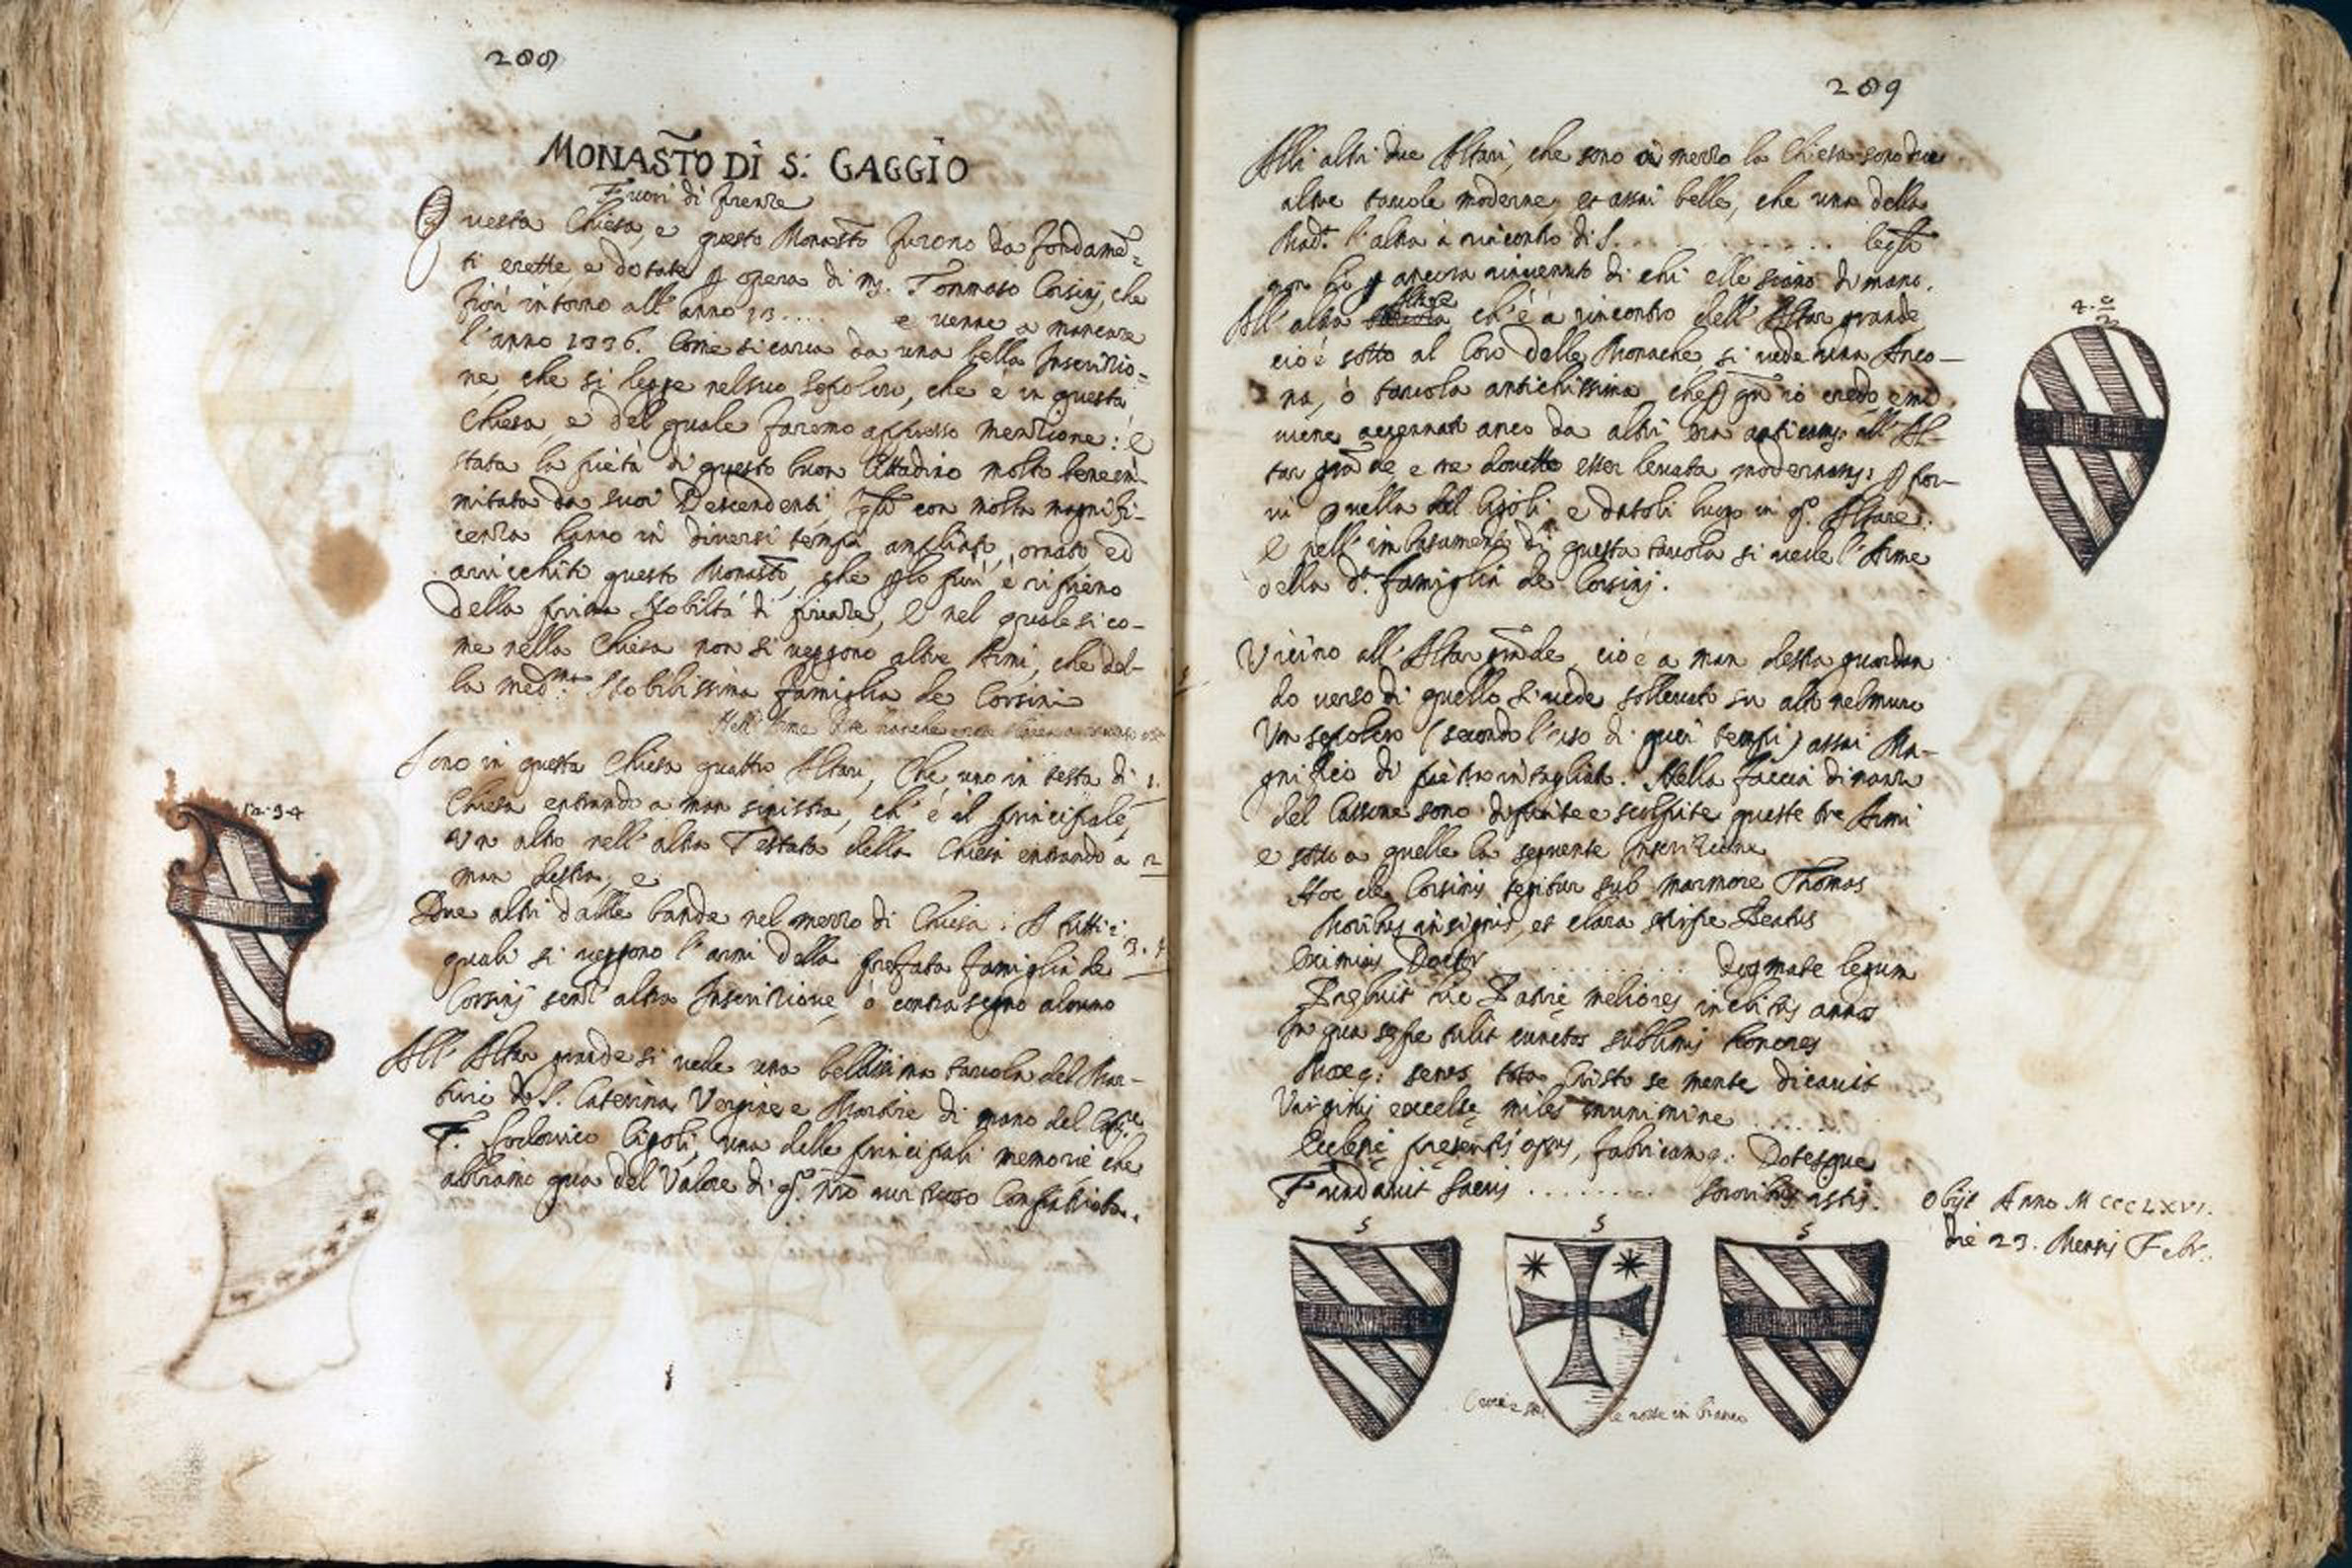 288
MONASTO DI S: GAGGIO
Fuori di Firenze
Questa Chiesa, e questo Monasto furono da fondamē=
ti erette e dotate p opera di ms. Tommaso Corsinj, che
fiorì intorno all' anno 13.... e venne a mancare
l'anno 1336. Come si cava da una bella Inscrizio=
ne, che si legge nel suo sepolcro, che è in questa
Chiesa, e del quale faremo appresso menzione: è
stata la pietà di questo buon Cittadino molto bene im=
mitata da suoi Descendenti, con molta magnifi-
cenza hanno in diversi tempi ampliato, ornato ed
arricchito questo Monasto, che è ripieno
della prima Nobiltà di firenze, e nel quale si co-
me nella Chiesa non si veggono altre Armi, che del-
la medma. Nobilissima famiglia de Corsini
Sono in questa Chiesa quattro Altari, Che uno in testa di 1.
Chiesa entrando a man sinistra, ch' è il principale,
Un altro nell' altra Testata della Chiesa entrando a 2
man destra, e
Due altri dalle bande nel mezzo di Chiesa: A tutti i 3. 4
quali si veggono l'armi della prefata famiglia de
Corsinj senz' altra Inscrizione, ò contrasegno alcuno
All' Altar grande si vede una bellissima tavola del Mar-
tirio di S. Caterina Vergine e Martire di mano del
F. Lodovico Cigoli, una delle principali memorie che
abbiamo qua del Valore di qo. nrō virtuoso Compatriota.
ca. 34
289
Alli altri due Altari, che sono in mezzo la Chiesa sono due
altre tavole moderne, et assai belle, che una della
Mada. l'altra a rincontro di S. . . . . . . .
non hò p ancora rinvenuto di chi elle siano di mano.
All' altro Altare ch' è a rincontro dell' Altar grande
cioè sotto al Coro delle Monache, si vede una Anco-
na, ò tavola antichissima, che io credo, e mi
viene accennato anco da altri era anticamte. all' Al-
tar grāde e ne dovette esser levata modernamte: p por-
vi quella del Cigoli, e datoli luogo in qo. Altare:
E nell' imbasamento di questa tavola si vede l'Arme
della da. famiglia de Corsinj.
Vicino all' Altar grāde, cioè a man destra guardan
do verso di quello si vede sollevato su alto nel muro
Un sepolcro (secondo l'uso di quei tempi) assai Ma-
gnifico di pietra intagliata. Nella faccia dinanzi
del Cassone sono dipinte e scolpite queste tre Armi
e sotto a quelle la seguente Inscrizione
Hoc de Corsinis tegitur sub marmore Thomas
Moribus insignis, et clara stirpe Beatus
Eximius Doctor . . . . . . . . . dogmate legum
Prebuit hic Patrie meliores inclitus annos
In qua sepe tulit cunctos sublimis honores
Moxq: senex tota Cristo se mente dicavit
Virginis excelse miles munimine . . . . .
Ecclesie presentis opus, fabricamq: Dotesque
Fundavit sacris . . . . . . . . sororibus astis.
Obijt Anno MCCCLXVI.
Die 23. Mensis Febr.
4. e 2
5
5
5
Croce e stelle rosse in bianco